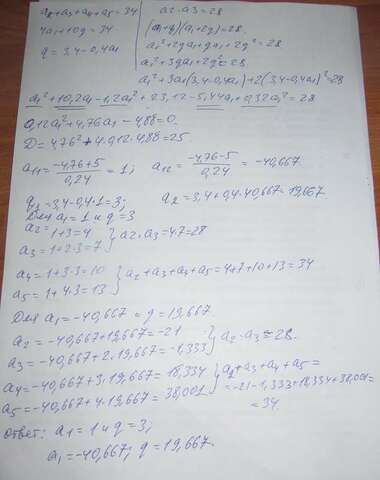 a₂+a₃+a₄+a₅=34
a₂·a₃=28
4a₁+10q=34
(a₁+q)(a₁+2q)=28
q=3,4-0,4a₁
a₁²+2qa₁+qa₁+2q²=28
a₁²+3qa₁+2q²=28
a₁²+3a₁(3,4-0,4a₁)+2(3,4-0,4a₁)²=28
a₁²+10,2a₁-1,2a₁²+23,12-5,44a₁+0,32a₁²=28
0,12a₁²+4,76a₁-4,88=0
D=4,76²+4·0,12·4,88=25
a₁₁=(-4,76+5)/0,24=1; a₁₂=(-4,76-5)/0,24=-40,667
q₁=3,4-0,4·1=3; q₂=3,4+0,4·40,667=19,667
Для a₁=1 и q=3
a₂=1+3=4
a₃=1+2·3=7 } a₂·a₃=4·7=28
a₄=1+3·3=10
a₅=1+4·3=13 } a₂+a₃+a₄+a₅=4+7+10+13=34
Для a₁=-40,667 и q=19,667
a₂=-40,667+19,667=-21
a₃=-40,667+2·19,667=-1,333 } a₂·a₃≈28
a₄=-40,667+3·19,667=18,334
a₅=-40,667+4·19,667=38,001 } a₂+a₃+a₄+a₅=
=-21-1,333+18,334+38,001=
=34
Ответ: a₁=1 и q=3;
a₁=-40,667; q=19,667